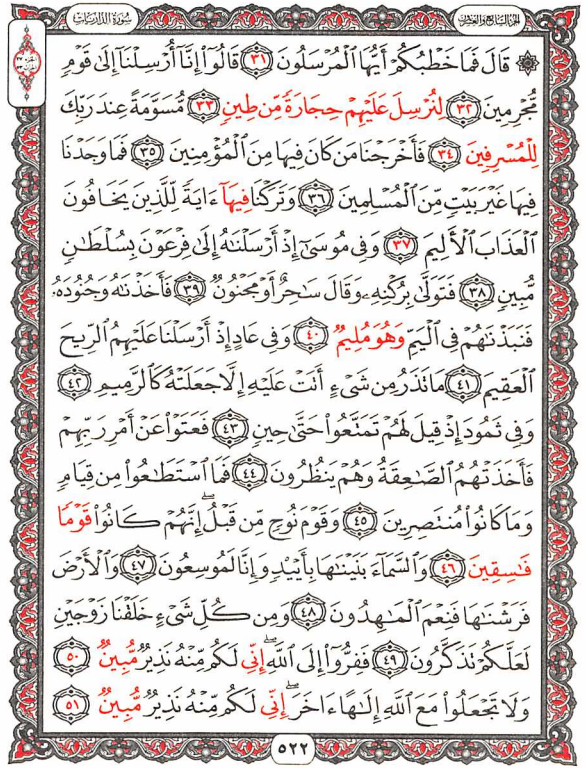 الجزء السابع والعشرون
سورة الذاريات
۞ قَالَ فَمَا خَطْبُكُمْ أَيُّهَا ٱلْمُرْسَلُونَ ٣١ قَالُوٓاْ إِنَّآ أُرْسِلْنَآ إِلَىٰ قَوْمٍ
مُّجْرِمِينَ ٣٢ لِنُرْسِلَ عَلَيْهِمْ حِجَارَةً مِّن طِينٍ ٣٣ مُّسَوَّمَةً عِندَ رَبِّكَ
لِلْمُسْرِفِينَ ٣٤ فَأَخْرَجْنَا مَن كَانَ فِيهَا مِنَ ٱلْمُؤْمِنِينَ ٣٥ فَمَا وَجَدْنَا
فِيهَا غَيْرَ بَيْتٍ مِّنَ ٱلْمُسْلِمِينَ ٣٦ وَتَرَكْنَا فِيهَآ ءَايَةً لِّلَّذِينَ يَخَافُونَ
ٱلْعَذَابَ ٱلْأَلِيمَ ٣٧ وَفِى مُوسَىٰٓ إِذْ أَرْسَلْنَٰهُ إِلَىٰ فِرْعَوْنَ بِسُلْطَٰنٍ
مُّبِينٍ ٣٨ فَتَوَلَّىٰ بِرُكْنِهِۦ وَقَالَ سَٰحِرٌ أَوْ مَجْنُونٌ ٣٩ فَأَخَذْنَٰهُ وَجُنُودَهُۥ
فَنَبَذْنَٰهُمْ فِى ٱلْيَمِّ وَهُوَ مُلِيمٌ ٤٠ وَفِى عَادٍ إِذْ أَرْسَلْنَا عَلَيْهِمُ ٱلرِّيحَ
ٱلْعَقِيمَ ٤١ مَا تَذَرُ مِن شَىْءٍ أَتَتْ عَلَيْهِ إِلَّا جَعَلَتْهُ كَٱلرَّمِيمِ ٤٢
وَفِى ثَمُودَ إِذْ قِيلَ لَهُمْ تَمَتَّعُواْ حَتَّىٰ حِينٍ ٤٣ فَعَتَوْاْ عَنْ أَمْرِ رَبِّهِمْ
فَأَخَذَتْهُمُ ٱلصَّٰعِقَةُ وَهُمْ يَنظُرُونَ ٤٤ فَمَا ٱسْتَطَٰعُواْ مِن قِيَامٍ
وَمَا كَانُواْ مُنتَصِرِينَ ٤٥ وَقَوْمَ نُوحٍ مِّن قَبْلُ ۖ إِنَّهُمْ كَانُواْ قَوْمًا
فَٰسِقِينَ ٤٦ وَٱلسَّمَآءَ بَنَيْنَٰهَا بِأَيْي۟دٍ وَإِنَّا لَمُوسِعُونَ ٤٧ وَٱلْأَرْضَ
فَرَشْنَٰهَا فَنِعْمَ ٱلْمَٰهِدُونَ ٤٨ وَمِن كُلِّ شَىْءٍ خَلَقْنَا زَوْجَيْنِ
لَعَلَّكُمْ تَذَكَّرُونَ ٤٩ فَفِرُّوٓاْ إِلَى ٱللَّهِ ۖ إِنِّى لَكُم مِّنْهُ نَذِيرٌ مُّبِينٌ ٥٠
وَلَا تَجْعَلُواْ مَعَ ٱللَّهِ إِلَٰهًا ءَاخَرَ ۖ إِنِّى لَكُم مِّنْهُ نَذِيرٌ مُّبِينٌ ٥١
٥٢٢